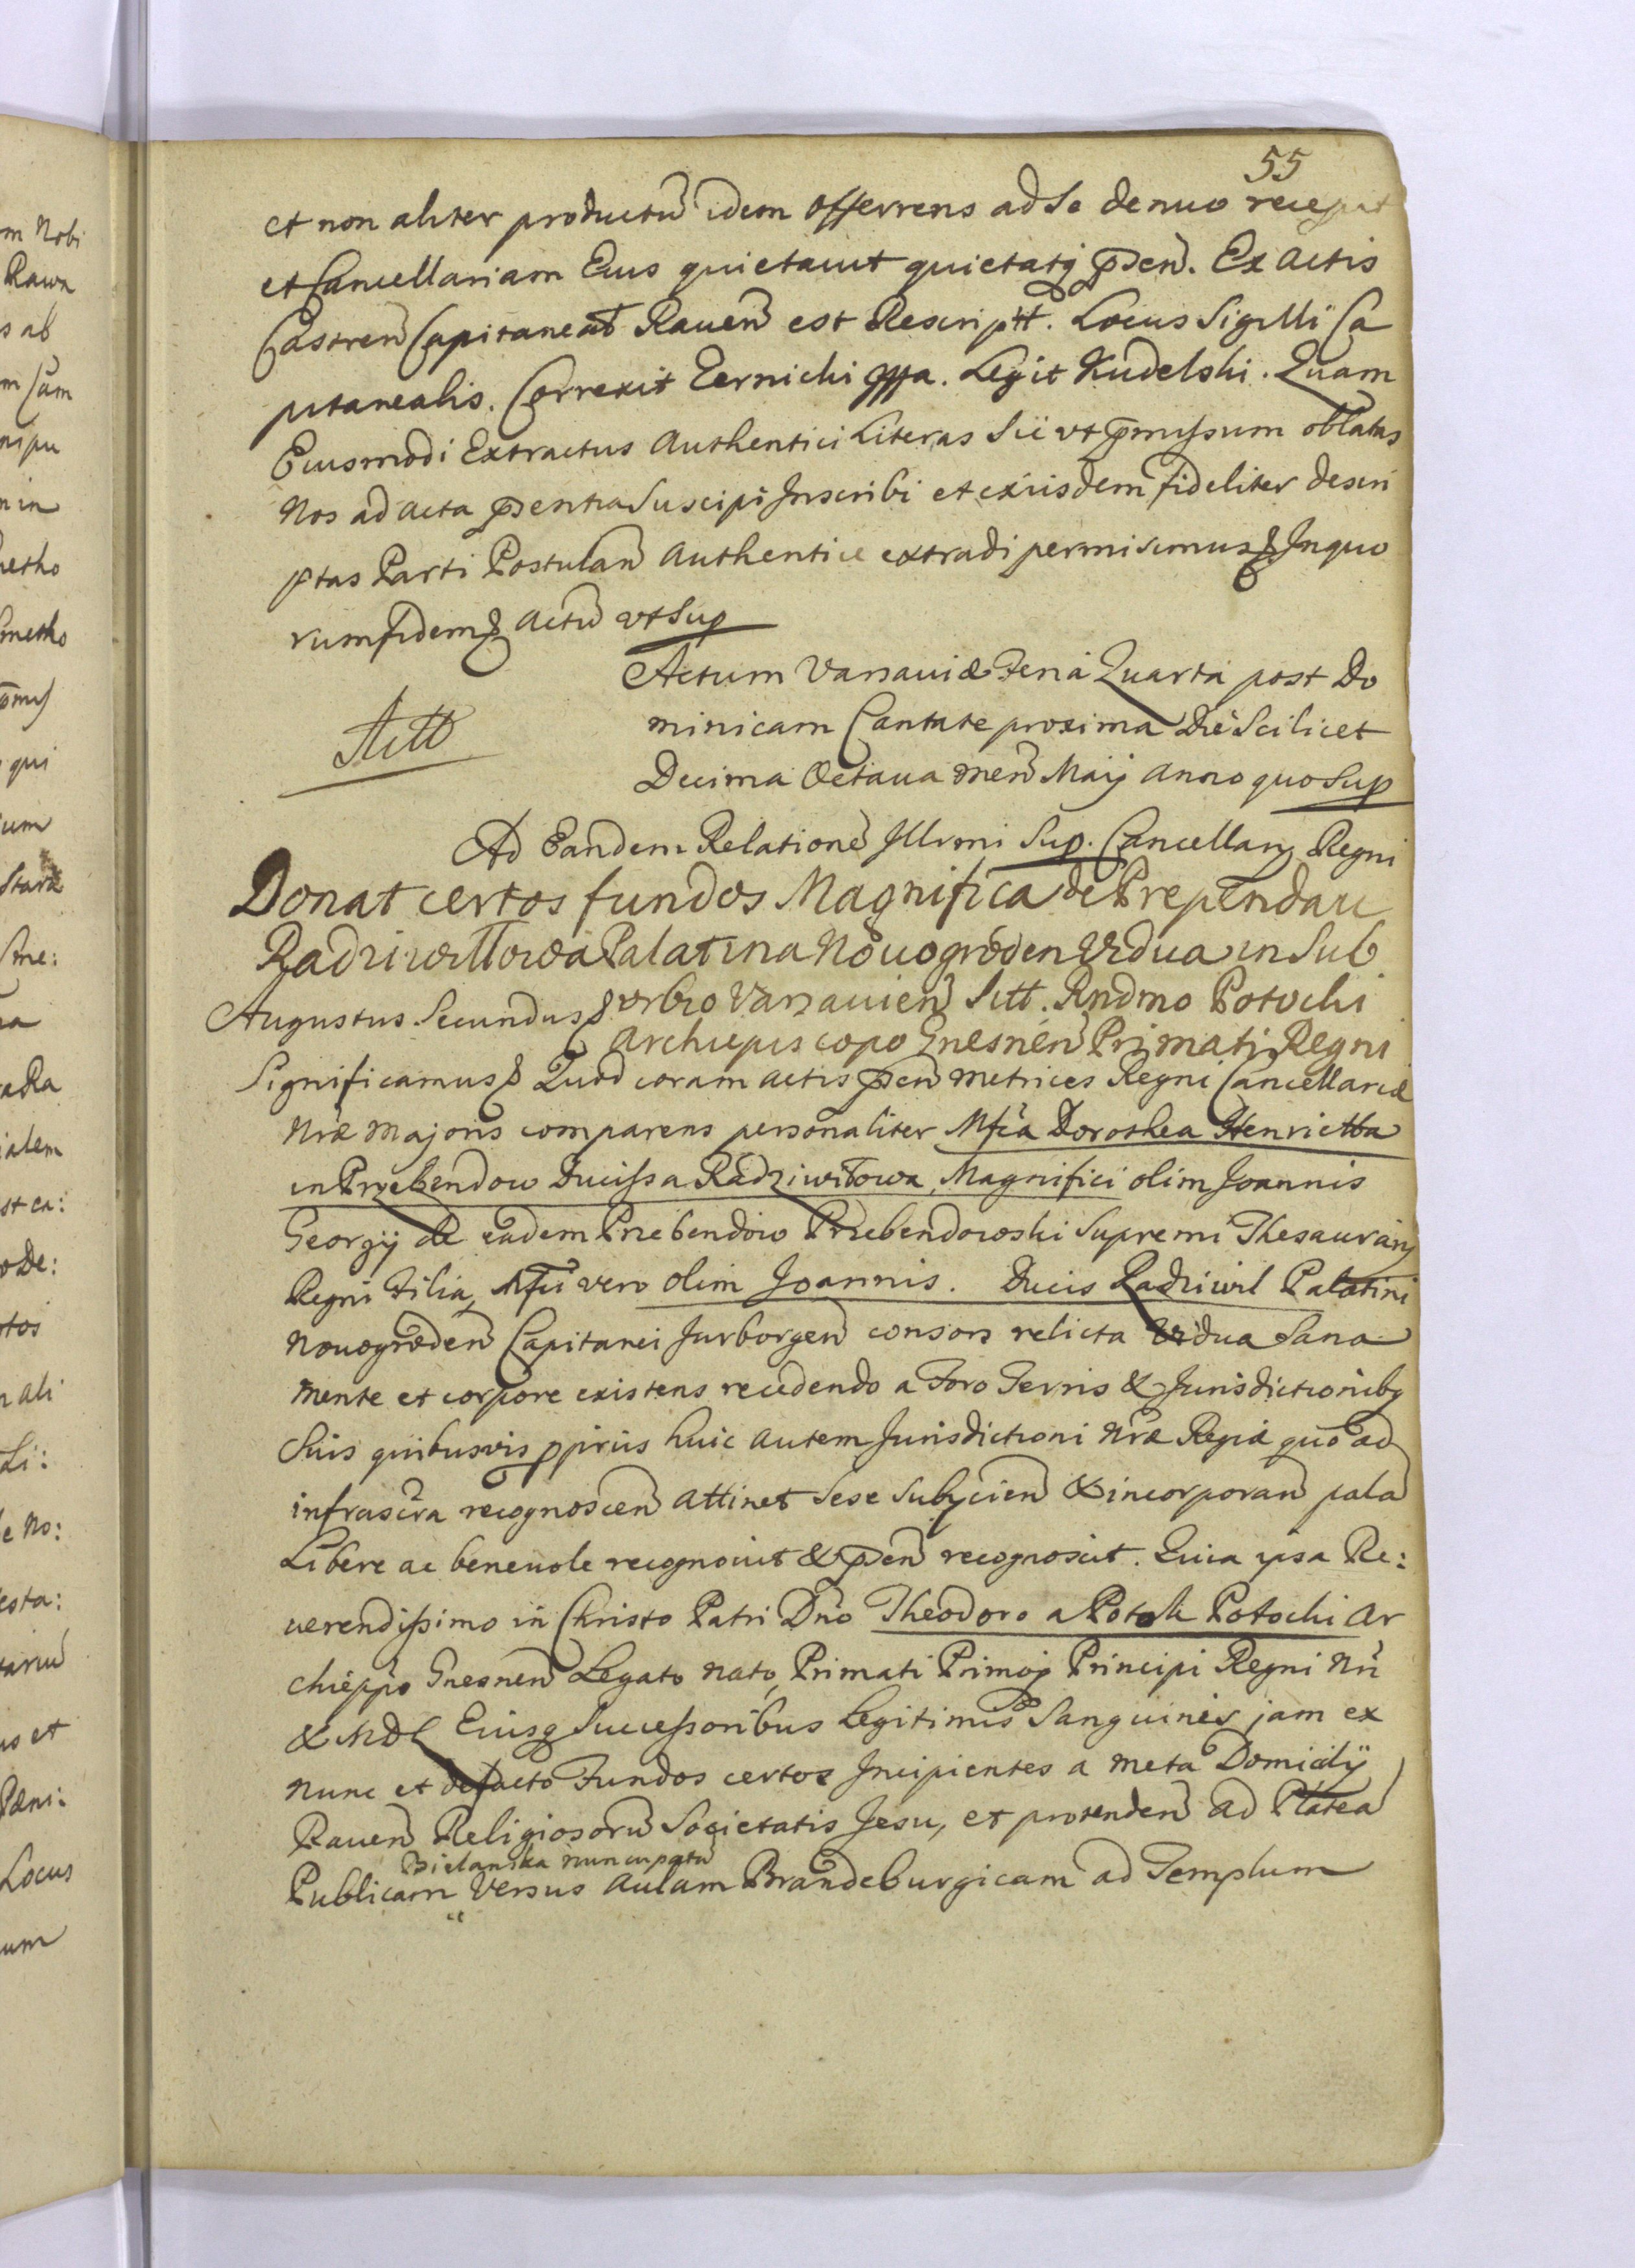 55
et non aliter productū idem offerrens ad se denuo recepit
et Cancellariam Eius quietauit quietatq̃ p̄sen̄. Ex Actis
Castren̄ Capitanealt̄ Rauen̄ est Rescriptt̄. Locus Sigilli Ca
pitanealis. Correxit Legit Kudelski. Quam
Eiusmodi Extractus Authentici Literas Sic vt p̄missum oblatas
Nos ad acta p̄sentia Suscipi Inscribi et exiisdem fideliter descri
ptas Parti Postulan̄ Authentice extradi permisimus & Inquo
rum fidem & Actū vt Sup
Actum Varsauiæ Feria Quarta post Do
minicam Cantate proxima Die Scilicet
Decima Octaua men̄ Maij Anno quo Sup
Ad Eandem Relationē Illrmi Sup. Cancellarij Regni
Donat certos fundos Magnifica de Prependau
Radziwiłłowa Palatina Nouogroden Vidua in Sub
Augustus Secundus & vrbio Varsauien̄ Sitt. Rndmo Potocki
Archiepiscopo Gnesnen̄ Primati Regni
Significamus & Quod coram actis p̄sen̄ Metrices Regni Cancellariæ
Nræ Majoris comparens personaliter Mfca Dorothea Henrietta
in Przebendow Ducissa Radziwiłowa, Magnifici olim Joannis
Georgij de eadem Przebendow Przebendowski Supremi Thesaurarij
Regni Filia, Mfci vero olim Joannis. Ducis Radziwil Palatini
Nouogroden̄ Capitanei Jurborgen̄ consors relicta Vidua Sana
Mente et corpore existens recedendo a Foro Terris & Jurisdictionibq
Suis quibusvis ppriis huic autem Jurisdictioni Nræ Regiæ quo ad
infrascra recognoscen̄ Attinet Sese Subijcien̄ & incorporan̄ palā
Libere ac beneuole recognouit & p̄sen̄ recognoscit. Quia ipsa Re:
uerendissimo in Christo Patri Dnō Theodoro a Potok Potocki Ar
chieppo Gnesnen̄ Legato Nato, Primati Primoq̃ Principi Regni Nri
& MDL Eiusq̃ Successoribus Legitimis Sanguineis jam ex
Nunc et defacto Fundos certos Incipientes a Meta Domicilij
Rauen̄ Religiosorū Societatis Jesu, et protenden̄ ad Plateā
Bielanska nuncupatā
Publicam Versus Aulam Brandeburgicam ad Templum